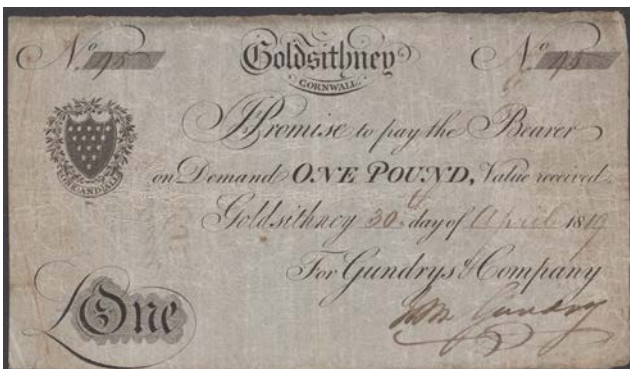 No 95 Goldsithney No 95
CORNWALL
I Promise to pay the Bearer
ONE AND ALL
on Demand ONE POUND, Value received.
Goldsithney 30 day of April 1819
For Gundrys & Company
£One
Wm Gundry